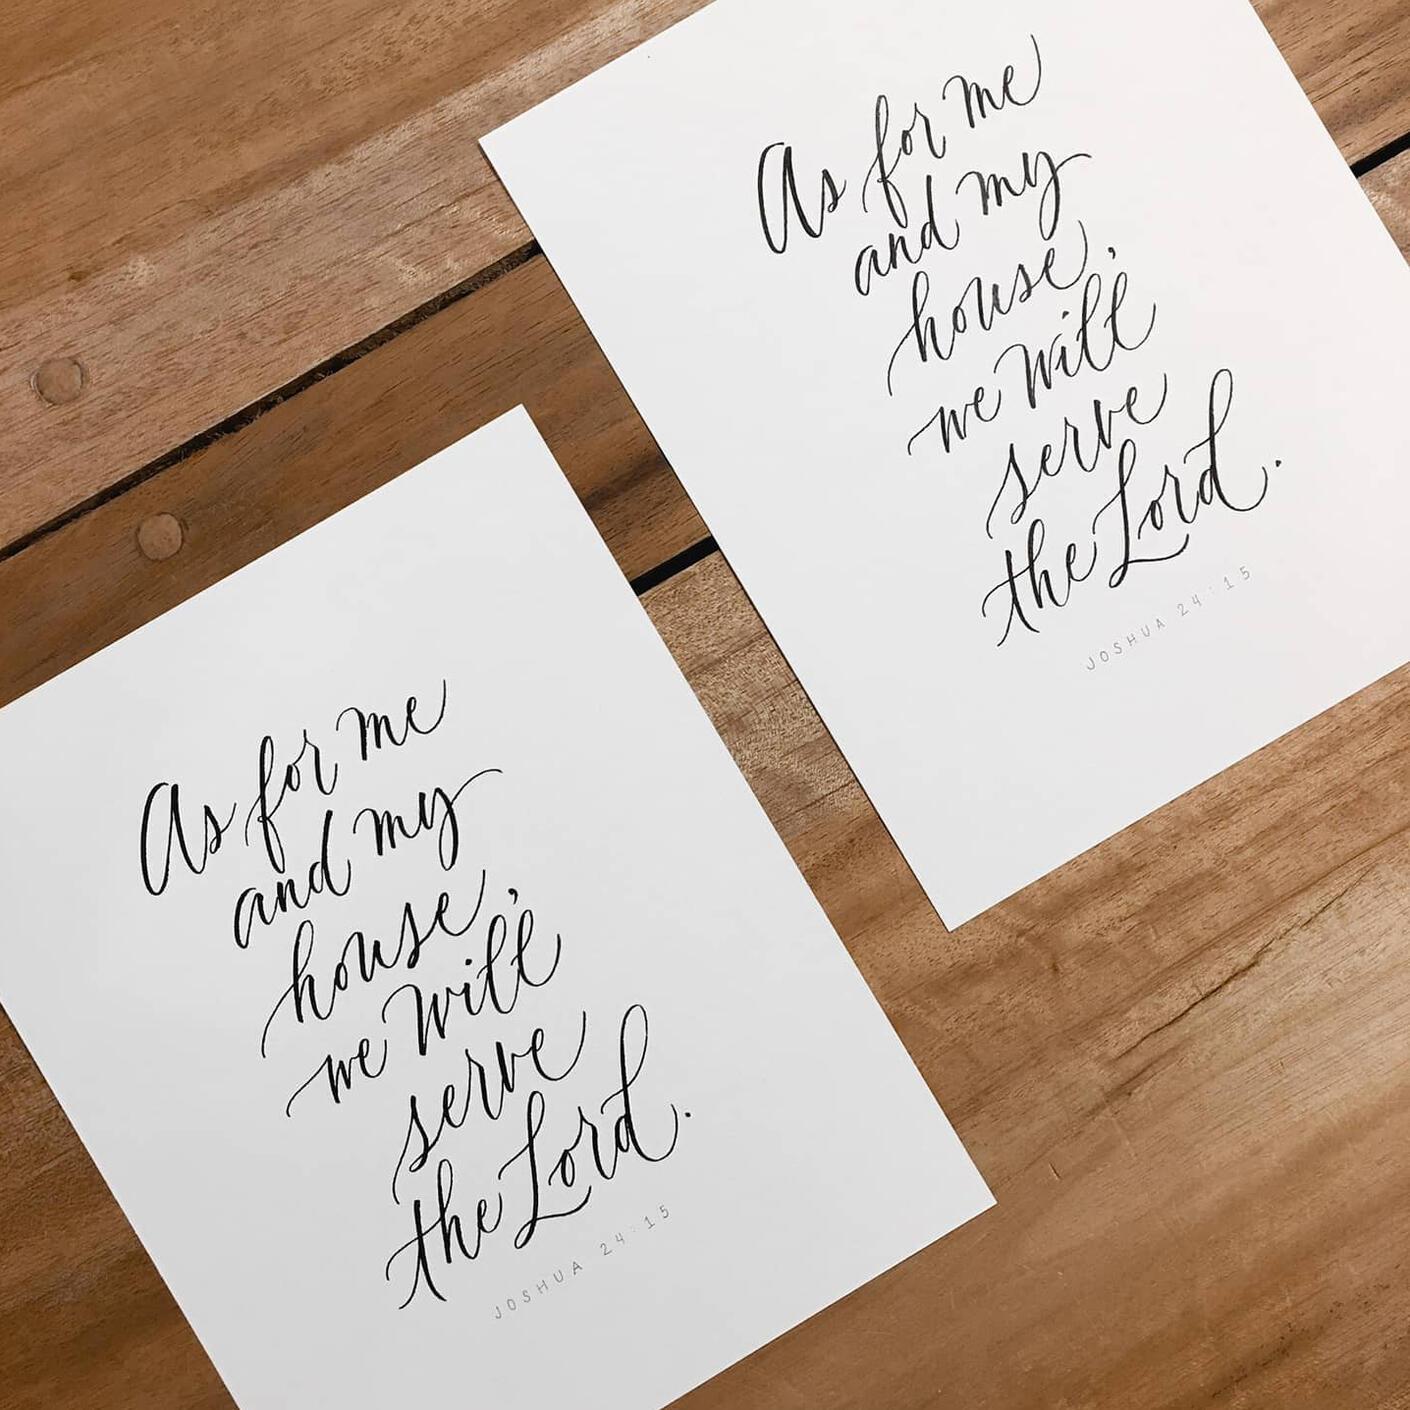 As for me
and my
house,
we will
serve
the Lord.
JOSHUA 24:15
As for me
and my
house,
we will
serve
the Lord.
JOSHUA 24:15